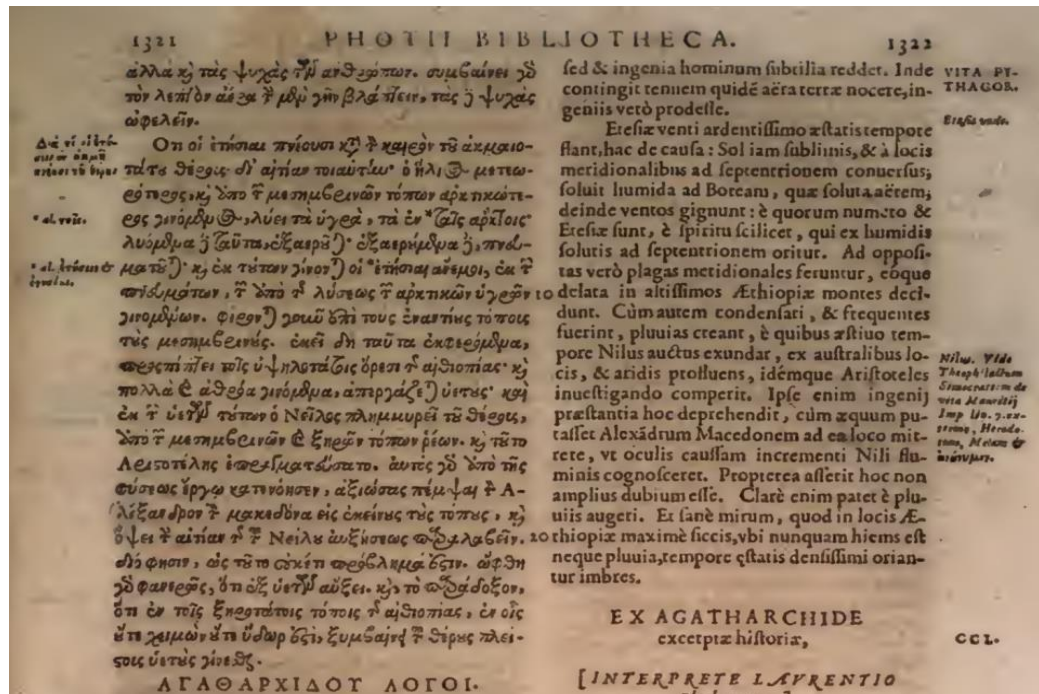 1321 PHOTII BIBLIOTHECA. 1322
ἀλλὰ κὶ τὰς ψυχὰς τῶν ἀνθρώπων. συμβαίνει γὸ
τὸν λεπτὸν ἀέρα τὴν μὲν γῆν βλάπτειν, τὰς δὲ ψυχὰς
ὠφελεῖν.
Οτι οἱ ἐτήσιαι πνέουσι κατὰ τὸν καιρὸν τοῦ ἀκμαιο-
τάτου θέρους δι' αἰτίαν τοιαύτην· ὁ ἥλιος μετεω-
ρότερος, κὶ ἀπὸ τῶν μεσημβρινῶν τόπων ἀρκτικώτε-
ρος γινόμενος, λύει τὰ ὑγρὰ, τὰ ἐν *ταῖς ἄρκτοις·
λυόμενα δὲ ταῦτα, ἐξαεροῦται· ἐξαερούμενα δὲ, πνευ-
ματοῦται· κὶ ἐκ τούτων γίνονται οἱ *ἐτήσιαι ἄνεμοι, ἐκ τῶν
πνευμάτων, τῶν ἀπὸ τῆς λύσεως τῶν ἀρκτικῶν ὑγρῶν 10
γινομένων. φέρονται γοῦν ἐπὶ τοὺς ἐναντίους τόπους
τοὺς μεσημβρινούς. ἐκεῖ δὴ ταῦτα ἐκφερόμενα,
προσπίπτει τοῖς ὑψηλοτάτοις ὄρεσι τῆς αἰθιοπίας· κὶ
πολλὰ καὶ ἀθρόα γινόμενα, ἀπεργάζεται ὑετούς· καὶ
ἐκ τῶν ὑετῶν τούτων ὁ Νεῖλος πλημμυρεῖ τοῦ θέρους,
ἀπὸ τῶν μεσημβρινῶν καὶ ξηρῶν τόπων ῥέων. κὶ τοῦτο
Αριστοτέλης ἐπραγματεύσατο. αὐτὸς γὸ ἀπὸ τῆς
φύσεως ἔργῳ κατενόησεν, ἀξιώσας πέμψαι τὸν Α-
λέξανδρον τὸν μακεδόνα εἰς ἐκείνους τοὺς τόπους, κὶ
ὄψει τὴν αἰτίαν τῆς τοῦ Νείλου αὐξήσεως παραλαβεῖν. 20
διό φησιν, ὡς τοῦτο οὐκέτι πρόβλημά ἐστιν. ὤφθη
γὸ φανερῶς, ὅτι ἐξ ὑετῶν αὔξει. κὶ, τὸ παράδοξον,
ὅτι ἐν τοῖς ξηροτάτοις τόποις τῆς αἰθιοπίας, ἐν οἷς
οὔτε χειμὼν οὔτε ὕδωρ ἐστὶ, ξυμβαίνει τοῦ θέρους πλεί-
στους ὑετοὺς γίνεσθαι.
ΑΓΑΘΑΡΧΙΔΟΥ ΛΟΓΟΙ.
* al. τοῖς.
sed & ingenia hominum subtilia reddet. Inde
contingit tenuem quidē aëra terræ nocere, in-
geniis verò prodesse.
Etesiæ venti ardentissimo æstatis tempore
flant, hac de causa: Sol iam sublimis, & à locis
meridionalibus ad septentrionem conuersus,
soluit humida ad Boream, quæ soluta aërem;
deinde ventos gignunt: è quorum numero &
Etesiæ sunt, è spiritu scilicet, qui ex humidis
solutis ad septentrionem oritur. Ad opposi-
tas verò plagas meridionales feruntur, eòque
delata in altissimos Æthiopiæ montes deci-
dunt. Cùm autem condensati, & frequentes
fuerint, pluuias creant, è quibus æstiuo tem-
pore Nilus auctus exundat, ex australibus lo-
cis, & aridis profluens, idémque Aristoteles
inuestigando comperit. Ipse enim ingenij
præstantia hoc deprehendit, cùm æquum pu-
tasset Alexādrum Macedonem ad ea loco mit-
tere, vt oculis caussam incrementi Nili flu-
minis cognosceret. Propterea asserit hoc non
amplius dubium esse. Clarè enim patet è plu-
uiis augeri. Et sanè mirum, quod in locis Æ-
thiopiæ maximè siccis, vbi nunquam hiems est
neque pluuia, tempore ęstatis densissimi orian-
tur imbres.
EX AGATHARCHIDE
excerptæ historiæ,
[INTERPRETE LAVRENTIO
VITA PY-
THAGOR.
Etesiæ unde.
Nilus. Vide
Theophilactum
Simocattam de
vita Mauritij
Imp lib. 7. ex-
tremo, Herodo-
tum, Melam &
CCL.